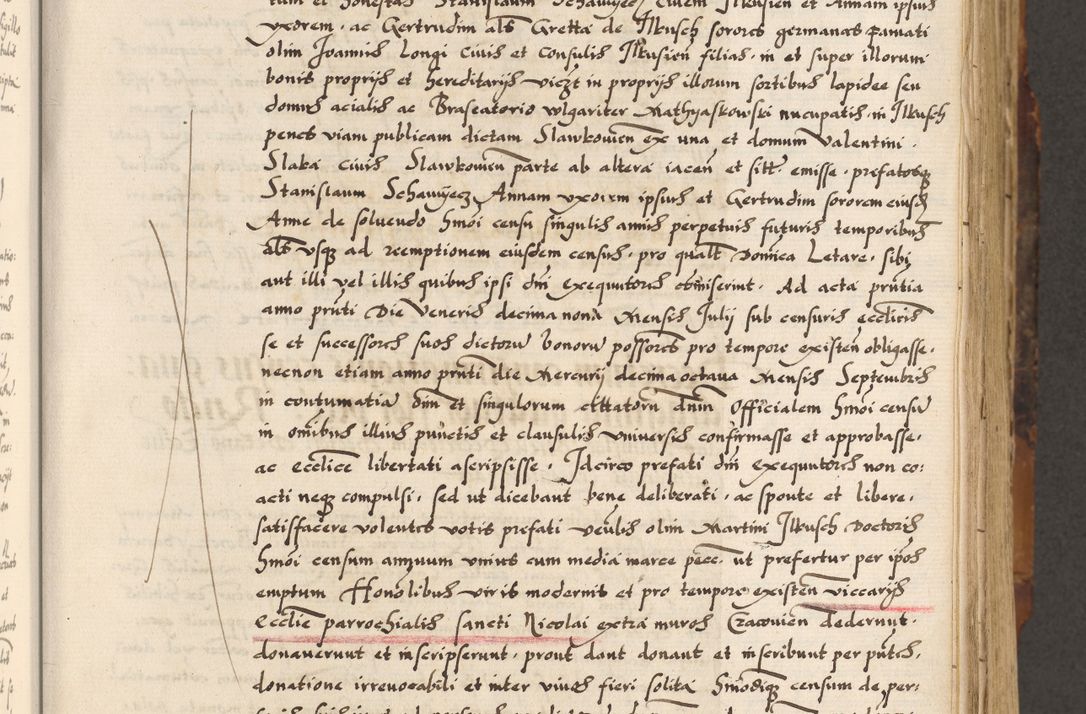 tum et honestas Stanislaum Schauyecz Civem Ilkusien et Annam ipsius
vxorem, ac Gertrudim als Gretta de Ilkusch sorores germanas famati
olim Joannis Longi Civis et Consulis Ilkusien filias, in et super illorum
bonis proprijs et hereditarijs viczt in proprijs illorum sortibus lapidee seu
domus acialis ac Braseatorio wlgariter Mathyaskowski nucupatis, in Ilkusch
penes viam publicam dictam Slawkovien ex una et domum Valentini
Slaka Civis Slawkovien parte ab altera iacen et sitt. emisse, prefatosq
Stanislaum Schauyecz, Annam vxorem ipsius et Gertrudim sororem eiusd
Anne de soluendo hmoi censu singulis annis perpetuis futuris temporibus
als vsq ad reemptionem eiusdem census, pro qualt Domica Letare, sibi
aut illi vel illis quibus ipsi dni exequutores comiserint. Ad acta pntia
anno pnti Die Veneris decima nona Mensis Julij sub censuris ecclicis
se et successores suos dictoru bonoru possores pro tempore existen obligasse,
necnon etiam anno pnti die Mercurij decima octaua Mensis Septembris
in contumatia oim et singulorum cittatoru dnm Officialem hmoi censu
in omibus illius punctis et clausulis vniversis confirmasse et approbasse,
ac ecclice libertati ascripsisse. Idcirco prefati dni exequutores non co:
acti neq compulsi, sed ut dicebant bene deliberati, ac sponte et libere,
satisfacere volentes votis prefati veulis olim Martini Ilkusch Doctoris
hmoi censum annuum vnius cum media marce pecc. ut prefertur per ipos
emptum Honolibus viris modernis et pro tempore existen viccarijs
Ecclie parrochialis sancti Nicolai extra muros Cracovien dederunt,
donauerunt et inscripserunt, prout dant donant et inscribunt per pntes,
donatione irreuocabili et inter viuos fieri solita hmodiq censum de per: